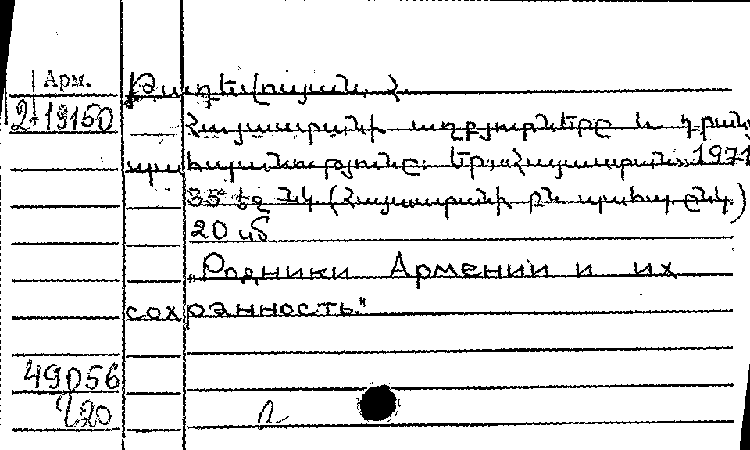 Арм.
Թադևոսյան Հ.
2-19150
Հայաստանի աղբյուրները և դրանց
պահպանությունը. Եր., Հայաստան, 1971
35 էջ նկ. (Հայաստանի բն. պահպ. ընկ.)
20 սմ
„Родники Армении и их
сохранность."
49056
720